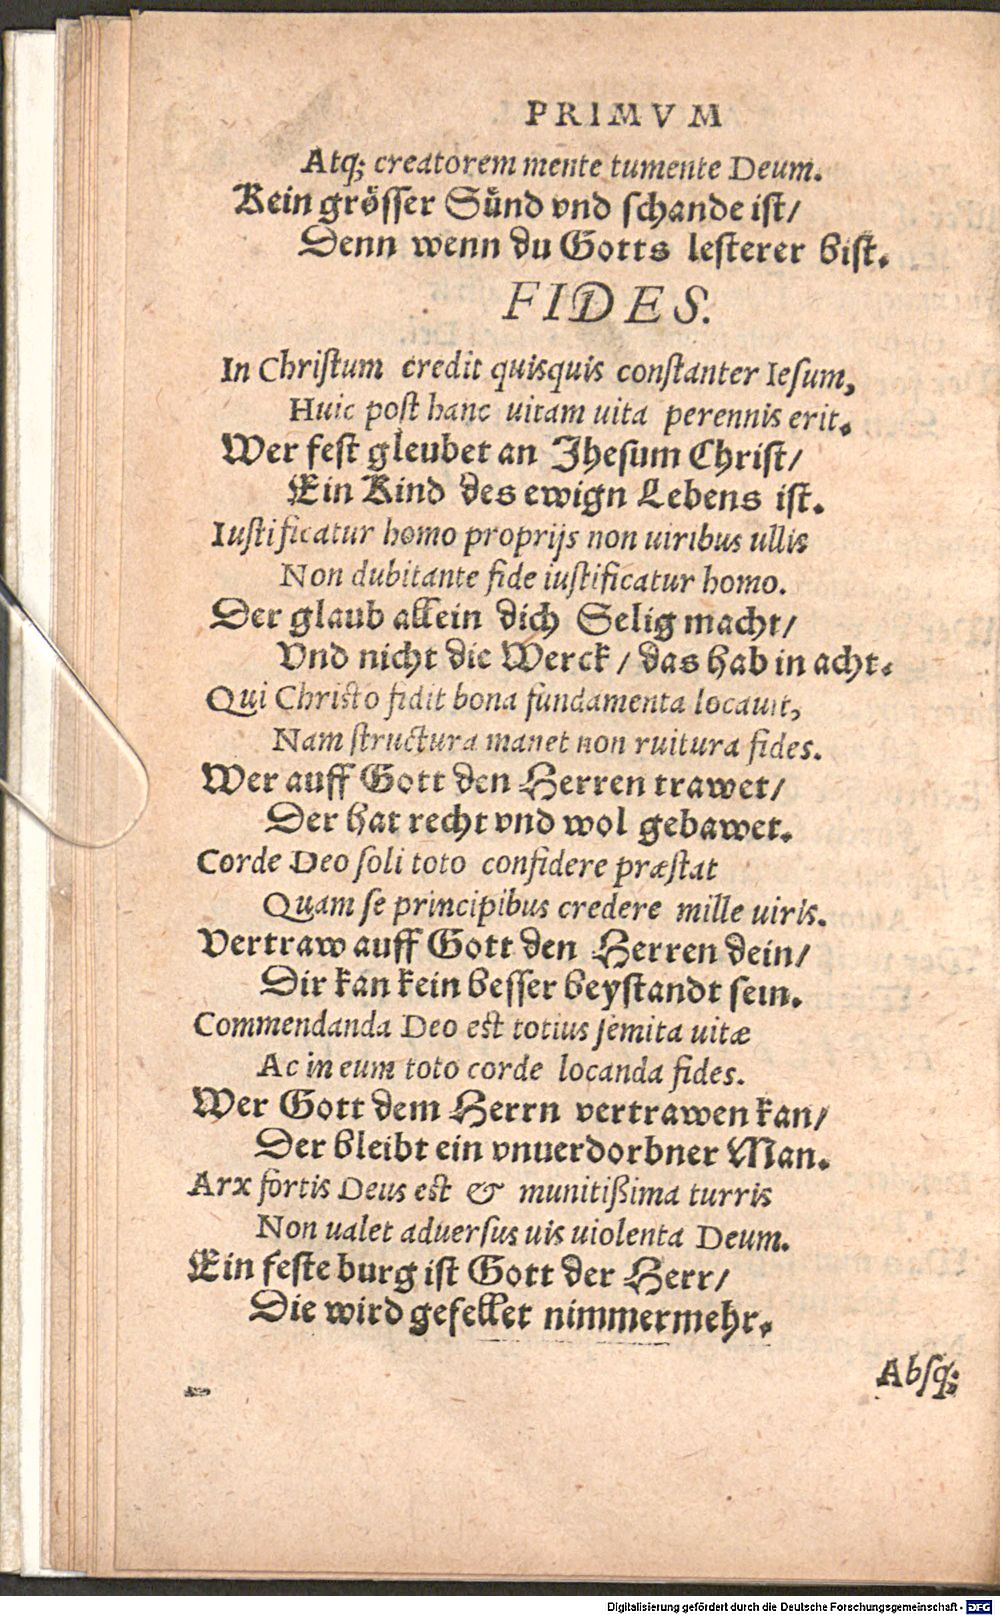 PRIMVM
Atq; creatorem mente tumente Deum.
Kein grösser Sünd vnd schande ist/
Denn wenn du Gotts lesterer bist.
FIDES.
In Chriſtum credit quisquis conſtanter Ieſum,
Huic poſt hanc uitam uita perennis erit.
Wer feſt gleubet an Jheſum Chriſt/
Ein Kind des ewign Lebens iſt.
Iuſtificatur homo proprijs non uiribus ullis
Non dubitante fide iuſtificatur homo.
Der glaub allein dich Selig macht/
Vnd nicht die Werck / das hab in acht.
Qui Christo fidit bona fundamenta locauit,
Nam ſtructura manet non ruitura fides.
Wer auff Gott den Herren trawet/
Der hat recht vnd wol gebawet.
Corde Deo ſoli toto confidere præſtat
Quam ſe principibus credere mille uiris.
Vertraw auff Gott den Herren dein/
Dir kan kein beſſer beyſtandt ſein.
Commendanda Deo est totius ſemita uitæ
Ac in eum toto corde locanda fides.
Wer Gott dem Herrn vertrawen kan/
Der bleibt ein vnuerdorbner Man.
Arx fortis Deus est & munitißima turris
Non ualet aduerſus uis uiolenta Deum.
Ein feſte burg iſt Gott der Herr/
Die wird gefellet nimmermehr.
Abſq;
Digitalisierung gefördert durch die Deutsche Forschungsgemeinschaft - DFG